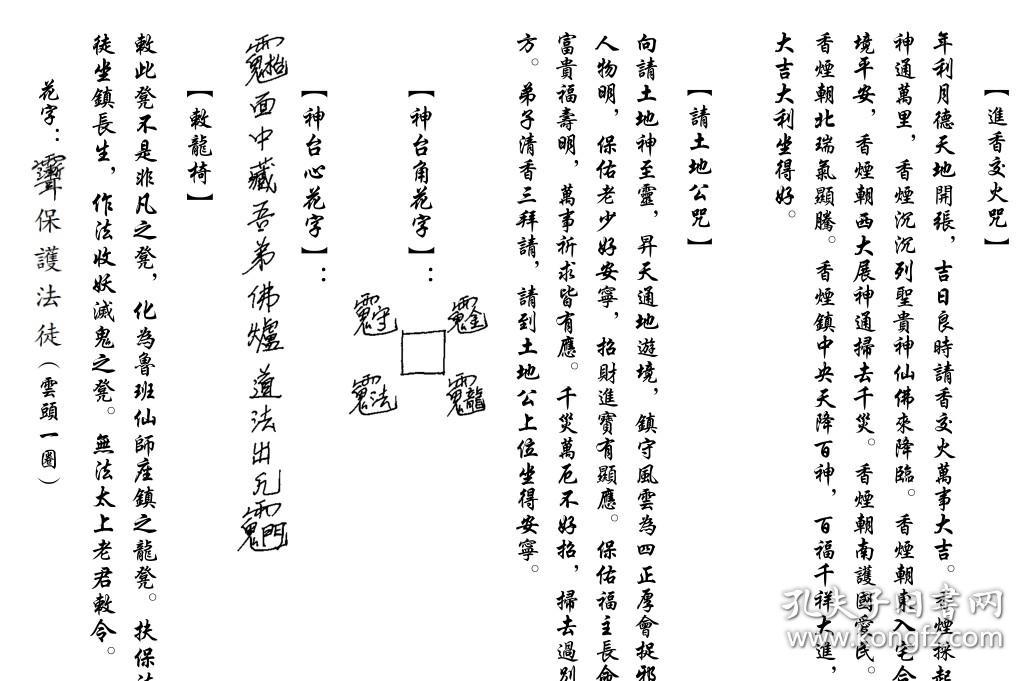 【進香交火咒】
年利月德天地開張，吉日良時請香交火萬事大吉。香煙採起
神通萬里，香煙沉沉列聖貴神仙佛來降臨。香煙朝東入宅合
境平安，香煙朝西大展神通掃去千災。香煙朝南護國愛民。
香煙朝北瑞氣顯騰。香煙鎮中央天降百神，百福千祥大進，
大吉大利坐得好。
【請土地公咒】
向請土地神至靈，昇天通地遊境，鎮守風雲為四正厚會捉邪
人物明，保佑老少好安寧，招財進寶有顯應。保佑福主長命
富貴福壽明，萬事祈求皆有應。千災萬厄不好招，掃去過別
方。弟子清香三拜請，請到土地公上位坐得安寧。
【神台角花字】：
【神台心花字】：
面中藏吾弟佛爐道法出凡
【敕龍椅】
敕此凳不是非凡之凳，化為魯班仙師座鎮之龍凳。扶保法
徒坐鎮長生，作法收妖滅鬼之凳。無法太上老君敕令。
花字：保護法徒（雲頭一圈）
孔夫子旧書网
www.kongfz.com